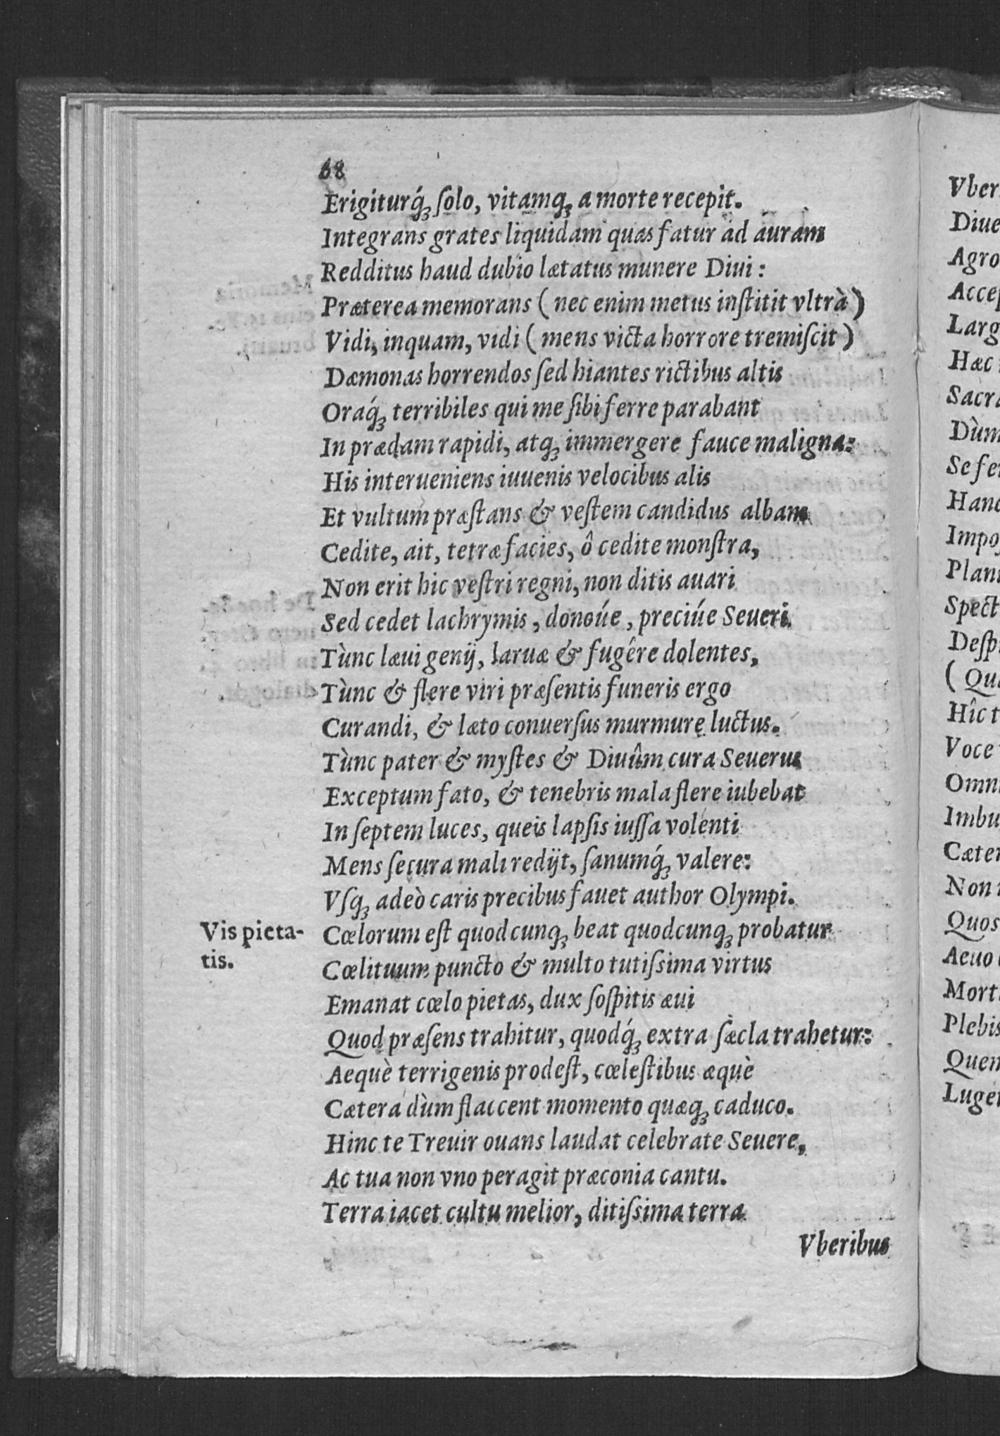 68
Erigiturq́; ſolo, vitamq; a morte recepit.
Integrans grates liquidam quas fatur ad auram
Redditus haud dubio lætatus munere Diui :
Præterea memorans ( nec enim metus inſtitit vltrà )
Vidi, inquam, vidi ( mens victa horrore tremiſcit )
Dæmonas horrendos ſed hiantes rictibus altis
Oraq́; terribiles qui me ſibi ferre parabant
In prædam rapidi, atq; immergere fauce maligna:
His interueniens iuuenis velocibus alis
Et vultum præſtans & veſtem candidus albam
Cedite, ait, tetræ facies, ô cedite monſtra,
Non erit hic veſtri regni, non ditis auari
Sed cedet lachrymis, donoúe, preciúe Seueri.
Tùnc læui genij, laruæ & fugêre dolentes,
Tùnc & flere viri præſentis funeris ergo
Curandi, & læto conuerſus murmure luctus.
Tùnc pater & myſtes & Diuûm cura Seuerus
Exceptum fato, & tenebris mala flere iubebat
In ſeptem luces, queis lapſis iuſſa volenti
Mens ſecura mali redijt, ſanumq́; valere:
Vſq; adeò caris precibus fauet author Olympi.
Vis pieta-
tis.
Cœlorum eſt quodcunq; beat quodcunq; probatur
Cœlituum puncto & multo tutiſsima virtus
Emanat cœlo pietas, dux ſoſpitis æui
Quod præſens trahitur, quodq́; extra ſæcla trahetur:
Aequè terrigenis prodeſt, cœleſtibus æquè
Cætera dùm flaccent momento quæq; caduco.
Hinc te Treuir ouans laudat celebrate Seuere,
Ac tua non vno peragit præconia cantu.
Terra iacet cultu melior, ditiſsima terra
Vberibus
Vber
Diue
Agro
Accep
Larg
Hæc
Sacra
Dùm
Se fe
Hanc
Impo
Plani
Spect
Deſpi
( Qu
Hîc t
Voce
Omn
Imbu
Cæter
Non
Quos
Aeuo
Mort
Plebis
Quem
Luget